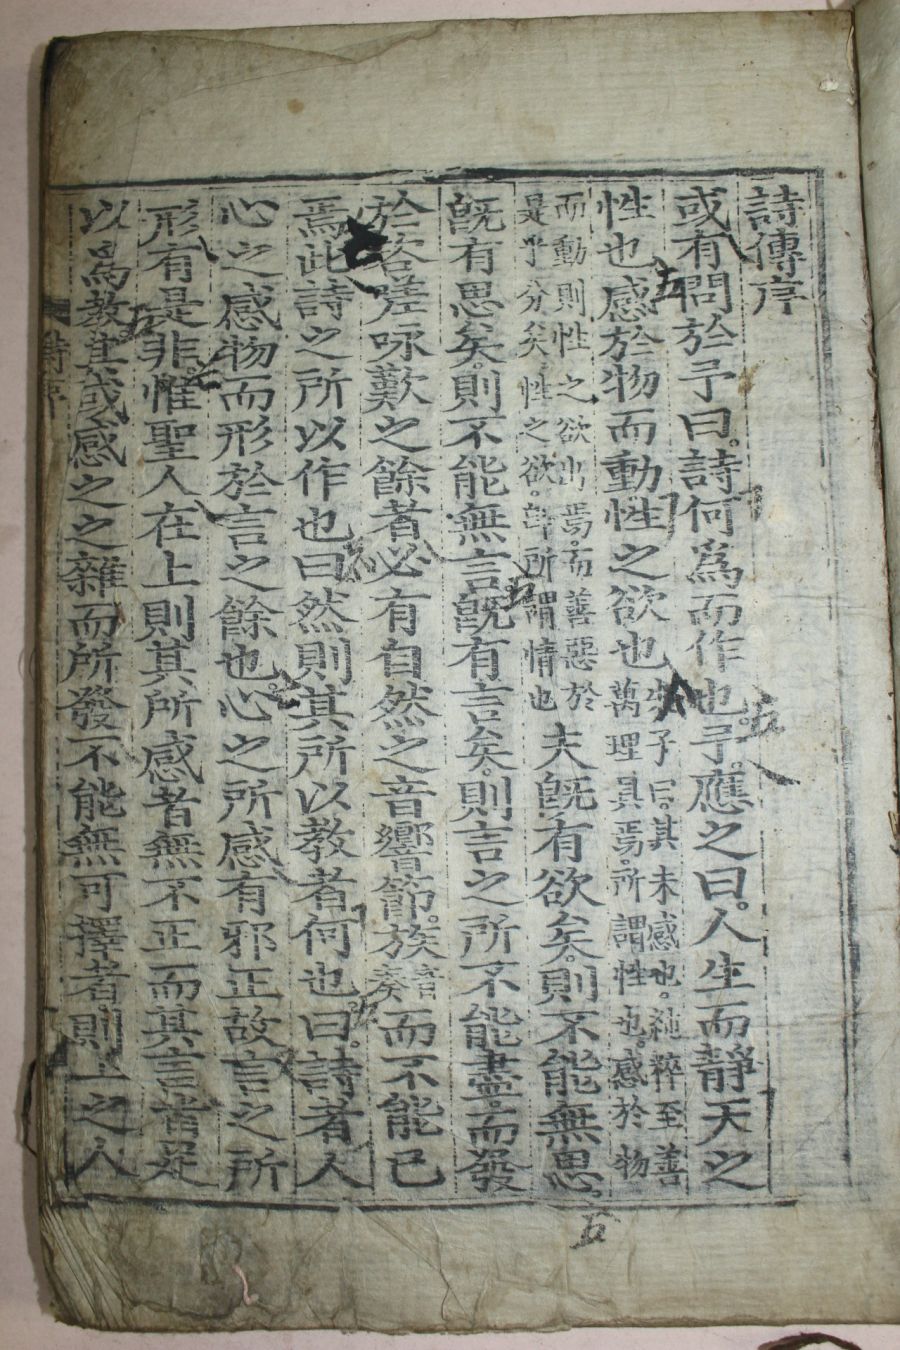 詩傳序
或有問於予曰詩何爲而作也予應之曰人生而靜天之
性也感於物而動性之欲也朱子曰其未感也純粹至善萬理具焉所謂性也感於物
而動則性之欲出焉而善惡於是乎分矣性之欲卽所謂情也夫旣有欲矣則不能無思
旣有思矣則不能無言旣有言矣則言之所不能盡而發
於咨嗟咏歎之餘者必有自然之音響節族音奏而不能已
焉此詩之所以作也曰然則其所以敎者何也曰詩者人
心之感物而形於言之餘也心之所感有邪正故言之所
形有是非惟聖人在上則其所感者無不正而其言皆足
以爲敎其或感之之雜而所發不能無可擇者則上之人
詩序